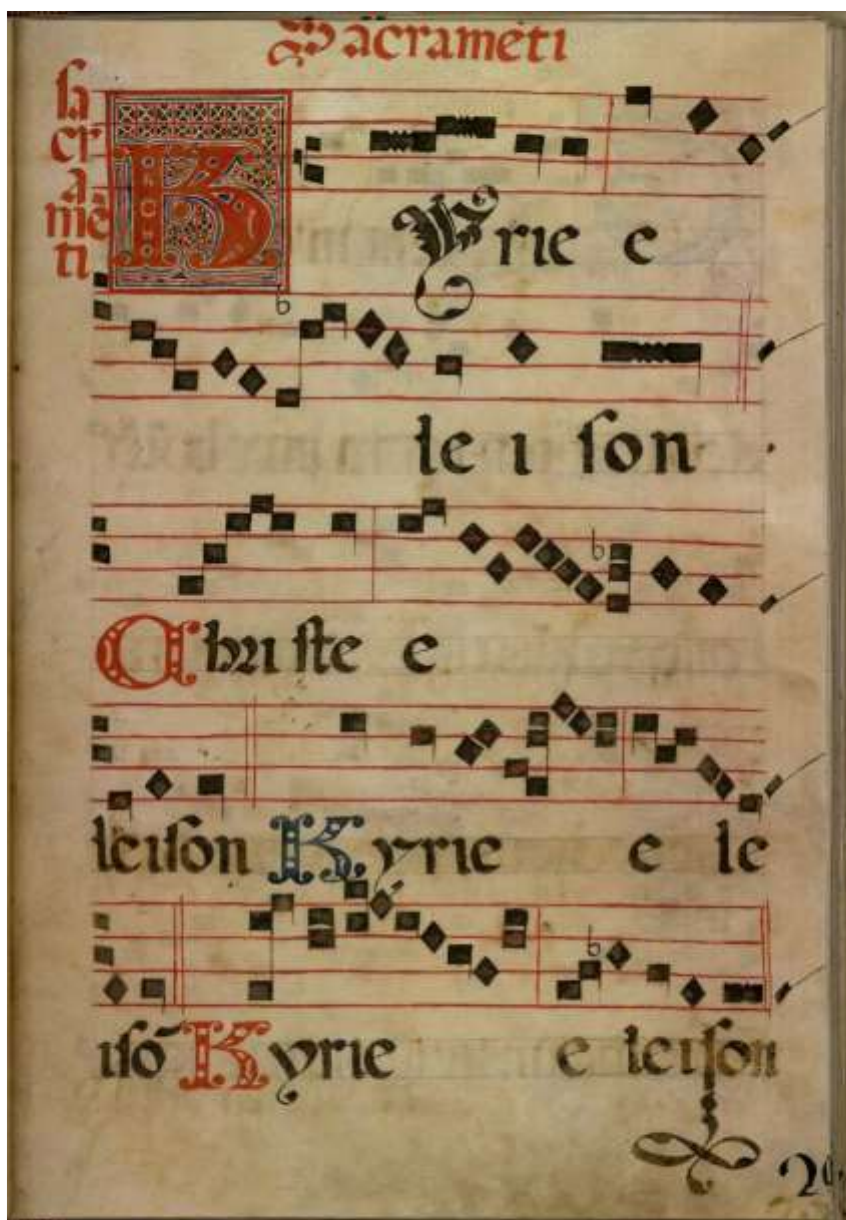 Sacramēti
sa
cr
a
mē
ti
Kyrie e
le i son
Christe e
leison Kyrie e le
isō Kyrie e leison